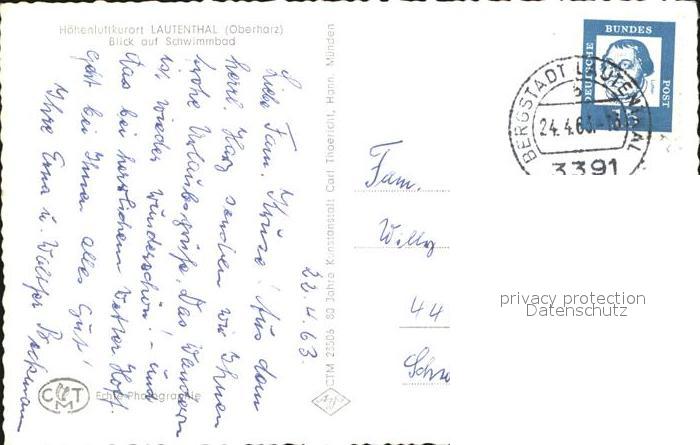 Höhenluftkurort LAUTENTHAL (Oberharz)
Blick auf Schwimmbad
22.4.63.
Liebe Fam. Kruse! Aus dem
herrl. Harz senden wir Ihnen
frohe Urlaubsgrüße. Das Wandern
ist wieder wunderschön! – und
das bei herrlichem Wetter. Hoff.
geht bei Ihnen alles Gut!
Ihre Erna u. Walter
Echte Photographie
CTM
CTM 25506 80 Jahre Kunstanstalt Carl Thoericht, Hann. Münden
Agfa
DEUTSCHE
BUNDES
POST
BERGSTADT LAUTENTHAL
24.4.63.
3391
Fam.
Willy
44
privacy protection
Datenschutz